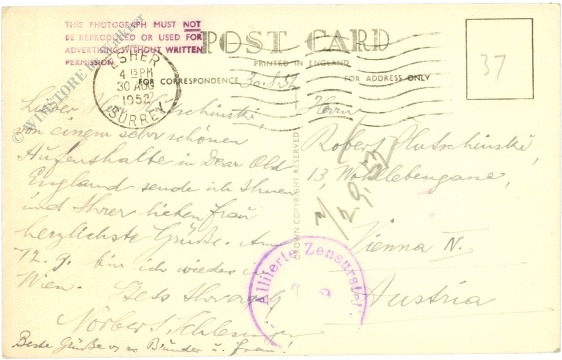 THIS PHOTOGRAPH MUST NOT
BE REPRODUCED OR USED FOR
ADVERTISING WITHOUT WRITTEN
PERMISSION
© WINSTORE
POST CARD
PRINTED IN ENGLAND
FOR CORRESPONDENCE
FOR ADDRESS ONLY
ESHER
4 15 PM
30 AUG
1952
SURREY
37
30.8.52
Lieber Herr
von einem sehr schönen
Aufenthalte in Dear Old
England sende ich Ihnen
und Ihrer lieben Frau
herzlichste Grüße. Am
12. 9. bin ich wieder in
Wien.
Stets Ihr
Norbert Schlesinger
Beste Grüße u. Frau!
CROWN COPYRIGHT RESERVED
Herrn
Robert Plutschinski,
13, Wohllebengasse,
Vienna IV.
Austria
Alliierte Zensurstelle